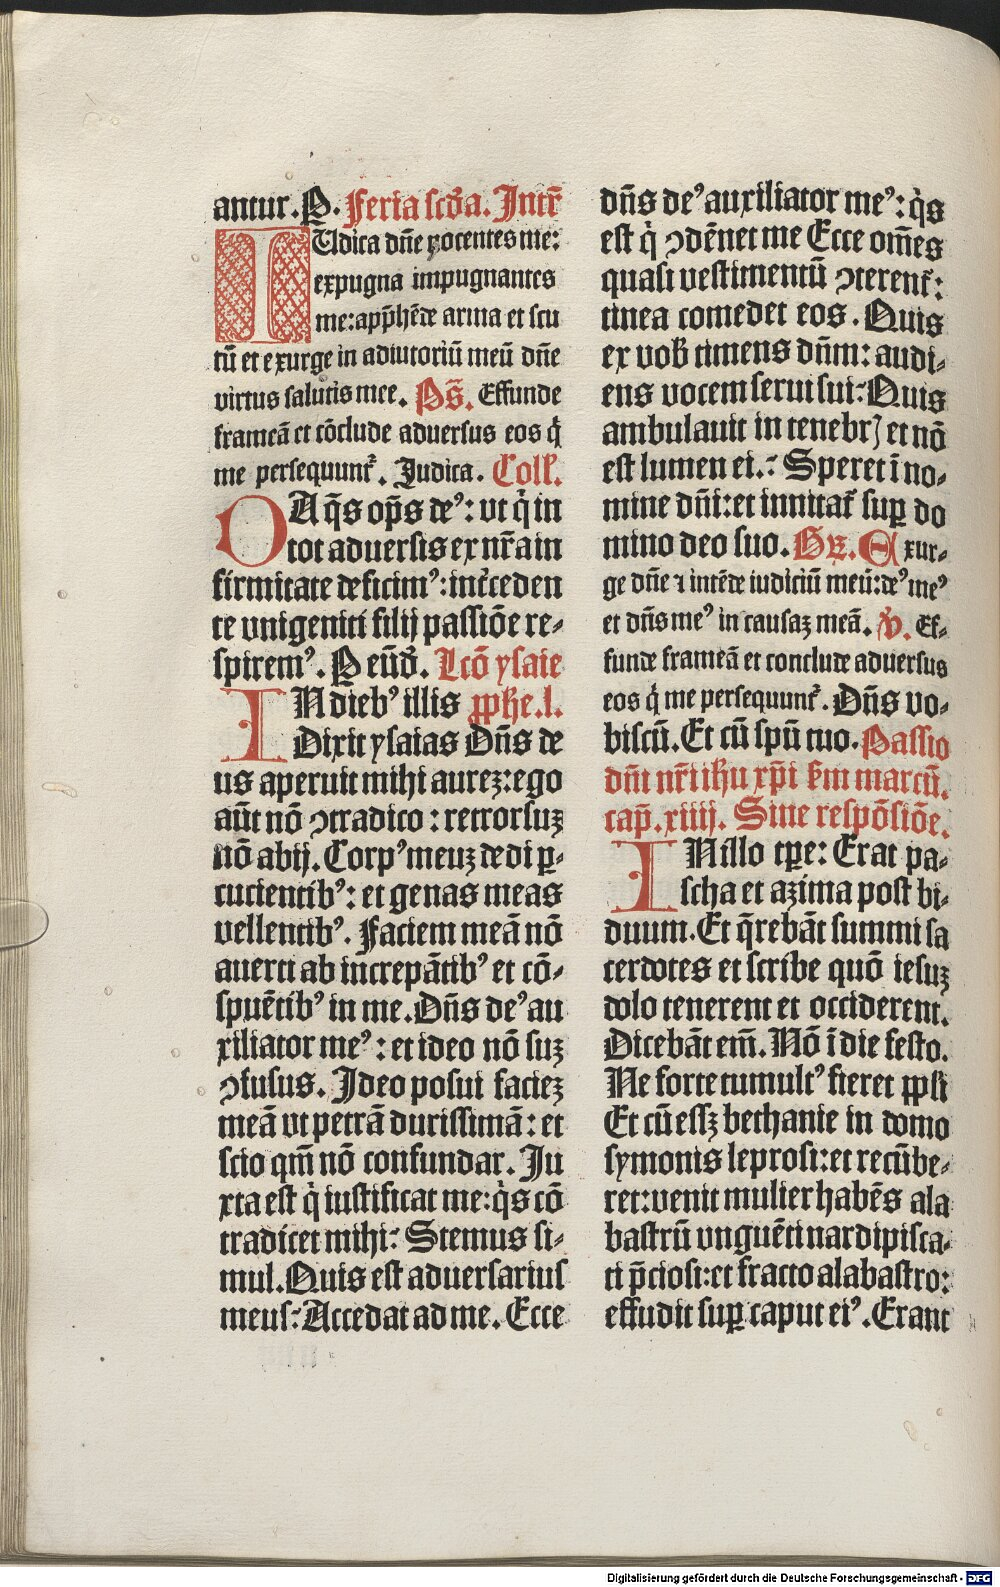 antur. P. Feria scd̃a. Intr̃
IUdica dñe nocentes me:
expugna impugnantes
me: app̃hẽde arma et scu
tũ et exurge in adiutoriũ meũ dñe
virtus salutis mee. Ps̃. Effunde
frameã et cõclude aduersus eos q̃
me persequunt̃. Iudica. Coll̃.
DA q̃s op̃s deꝰ: ut q̃ in
tot aduersis ex nr̃a in
firmitate deficimꝰ: int̃ceden
te unigeniti filij passiõe re⸗
spiremꝰ. P eũd̃. Lcõ ysaie
IN diebꝰ illis ꝓphe. l.
Dixit ysaias Dñs de
us aperuit mihi aureʒ: ego
aũt nõ ꝯtradico: retrorsuʒ
nõ abij. Corpꝰ meuʒ dedi ꝑ⸗
cucientibꝰ: et genas meas
vellentibꝰ. Faciem meã nõ
auerti ab increpãtibꝰ et cõ⸗
spuẽtibꝰ in me. Dñs deꝰ au
xiliator meꝰ: et ideo nõ suʒ
ꝯfusus. Ideo posui facieʒ
meã ut petrã durissimã: et
scio qm̃ nõ confundar. Iu
xta est q̃ iustificat me: q̃s cõ
tradicet mihi: Stemus si⸗
mul. Quis est aduersarius
meus: Accedat ad me. Ecce
dñs deꝰ auxiliator meꝰ: q̃s
est q̃ ꝯdẽnet me Ecce om̃es
quasi vestimentũ ꝯterent̃:
tinea comedet eos. Quis
ex vob̃ timens dñm: audi⸗
ens vocem serui sui: Quis
ambulauit in tenebrꝭ et nõ
est lumen ei.: Speret ĩ no⸗
mine dñi: et innitat̃ suꝑ do
mino deo suo. Gr̃. Exur⸗
ge dñe ⁊ intẽde iudiciũ meũ: deꝰ meꝰ
et dñs meꝰ in causaʒ meã. V̾. Ef⸗
funde frameã et conclude aduersus
eos q̃ me persequunt̃. Dñs vo⸗
biscũ. Et cũ spũ tuo. Passio
dñi nr̃i ih̃u xp̃i s̃m marcũ.
cap̃. xiiij. Sine respõsiõe.
IN illo tꝑe: Erat pa⸗
scha et azima post bi⸗
duum. Et q̃rebãt summi sa
cerdotes et scribe quõ iesuʒ
dolo tenerent et occiderent.
Dicebãt em̃. Nõ ĩ die festo.
Ne forte tumultꝰ fieret ꝓpli
Et cũ essʒ bethanie in domo
symonis leprosi: et recũbe⸗
ret: venit mulier habẽs ala
bastrũ unguẽti nardi pisca⸗
ti p̃ciosi: et fracto alabastro:
effudit suꝑ caput eiꝰ. Erant
Digitalisierung gefördert durch die Deutsche Forschungsgemeinschaft - DFG